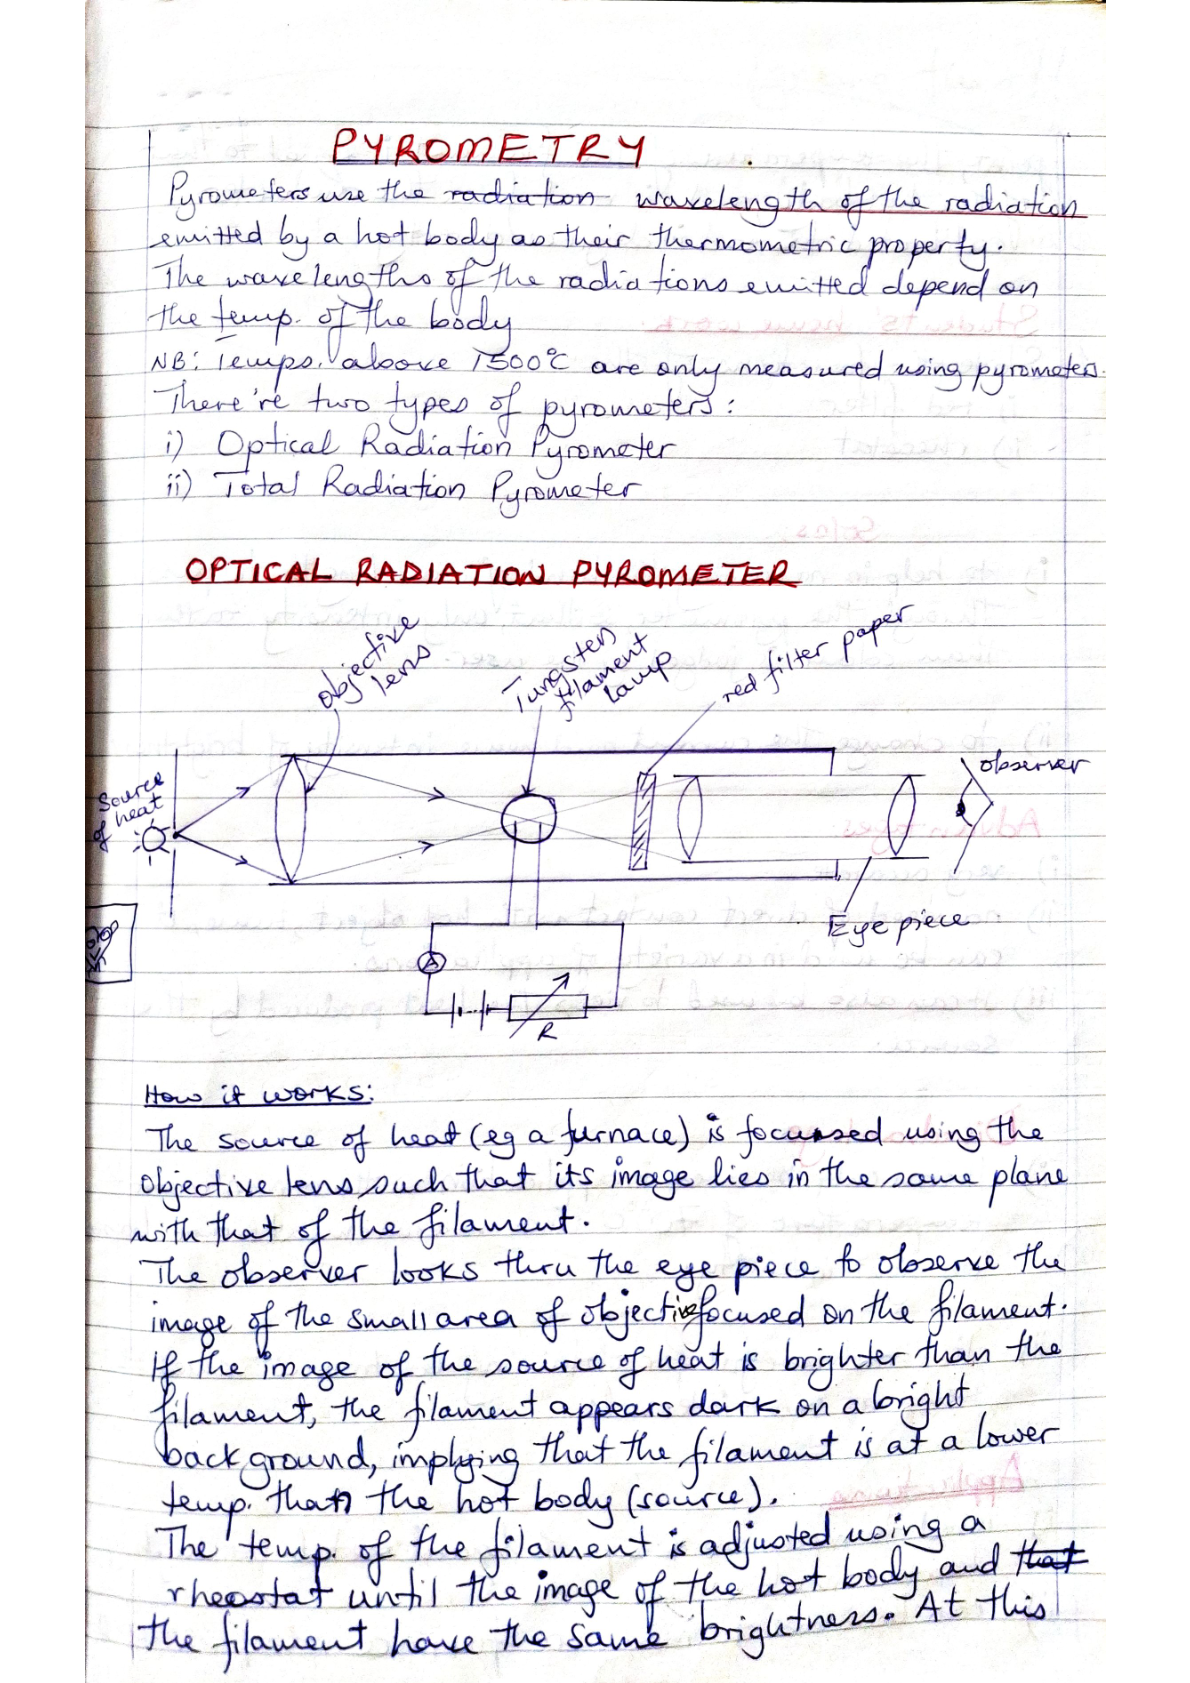 PYROMETRY
Pyrometers use the radiation wavelength of the radiation
emitted by a hot body as their thermometric property.
The wavelengths of the radiations emitted depend on
the temp. of the body
NB: Temps. above 1500°C are only measured using pyrometers.
There're two types of pyrometers:
i) Optical Radiation Pyrometer
ii) Total Radiation Pyrometer
OPTICAL RADIATION PYROMETER
objective
lens
Tungsten
filament
lamp
red filter paper
Source
of heat
observer
Eye piece
A
R
How it works:
The source of heat (eg a furnace) is focussed using the
objective lens such that its image lies in the same plane
with that of the filament.
The observer looks thru the eye piece to observe the
image of the small area of objective focused on the filament.
If the image of the source of heat is brighter than the
filament, the filament appears dark on a bright
background, implying that the filament is at a lower
temp. than the hot body (source).
The temp. of the filament is adjusted using a
rheostat until the image of the hot body and that
the filament have the same brightness. At this